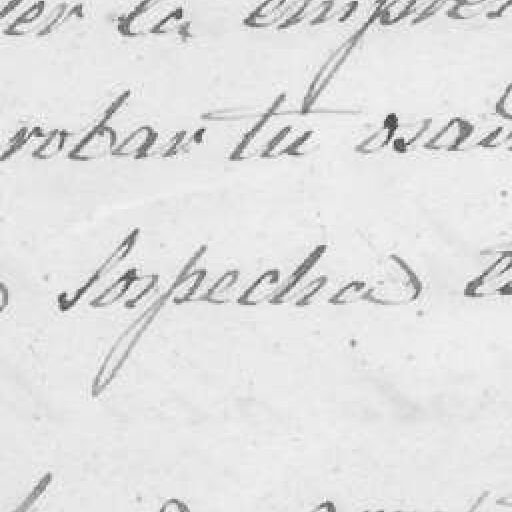 er la empres
robar tu osad
Sospecha)